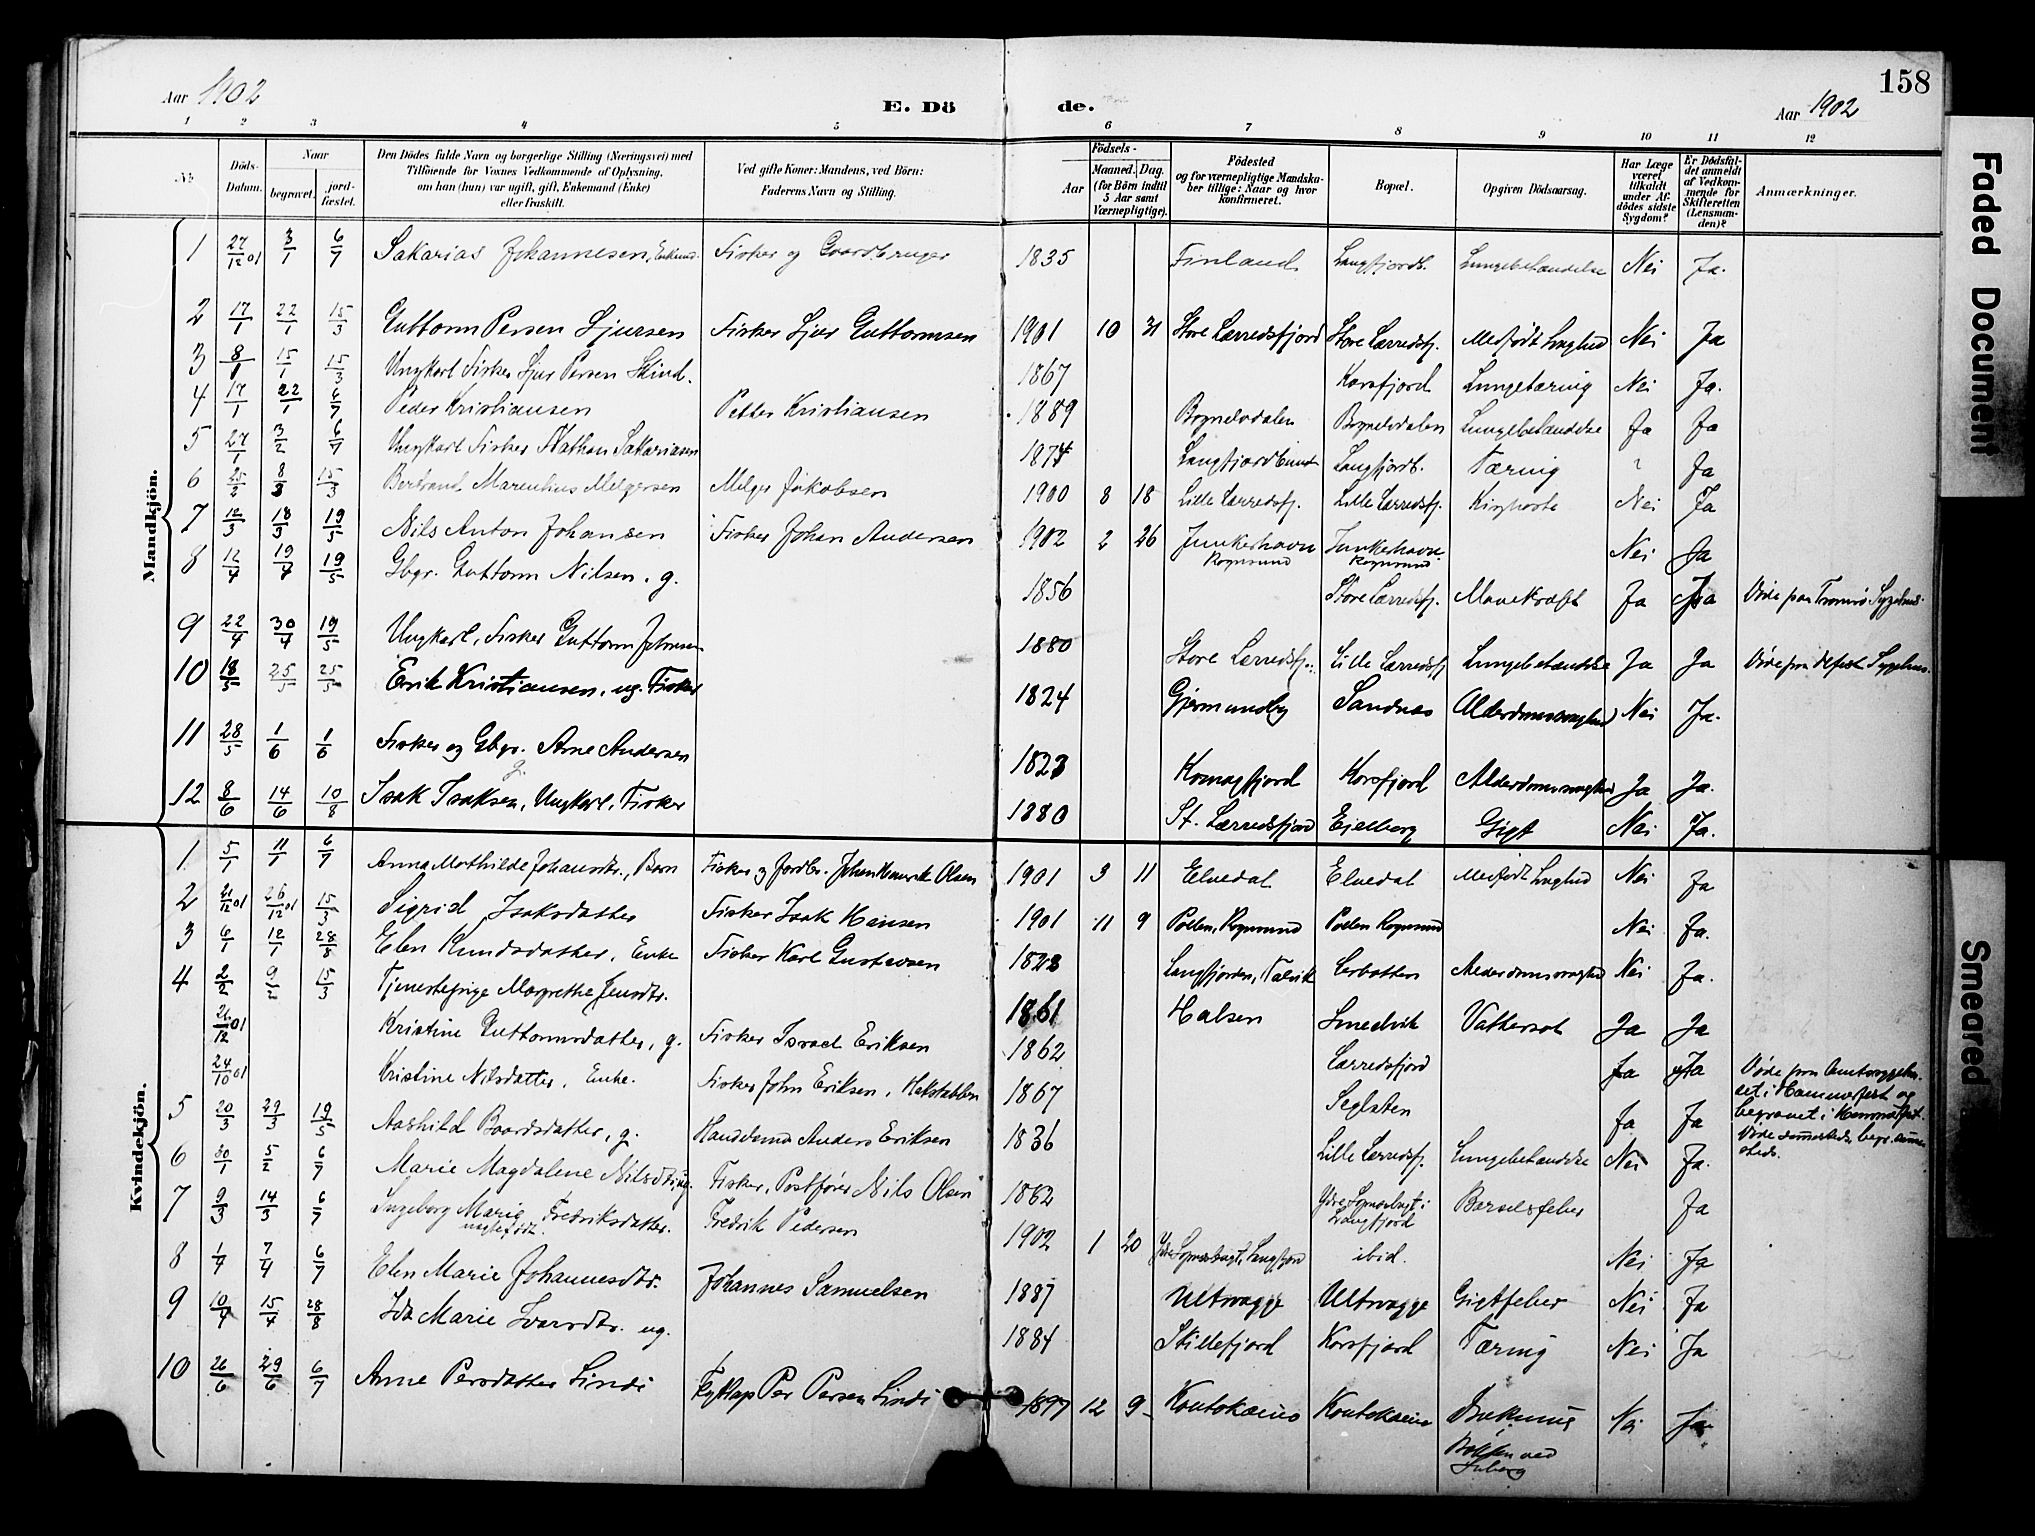 158
Aar 1902
E. Dö de.
Aar 1902
1 2 3 4 5 6 7 8 9 10 11 12
No
Döds-Datum.
Naar
begravet.
jord-fæstet.
Den Dödes fulde Navn og borgerlige Stilling (Næringsvei) med
Tilföiende for Voxnes Vedkommende af Oplysning,
om han (hun) var ugift, gift, Enkemand (Enke)
eller fraskilt.
Ved gifte Koner: Mandens, ved Börn:
Faderens Navn og Stilling.
Födsels-
Aar
Maaned.
Dag.
(for Börn indtil
5 Aar samt
Værnepligtige).
Födested
og for værnepligtige Mandska-
ber tillige: Naar og hvor
konfirmeret.
Bopæl.
Opgiven Dödsaarsag.
Har Læge
været
tilkaldt
under Af-
dödes sidste
Sygdom?
Er Dödsfal-
det anmeldt
af Vedkom-
mende for
Skifteretten
(Lensman-
den)?
Anmærkninger.
Mandkjön.
1 27/12 01 3/1 6/7 Sakarias Johannesen, Enkem. Fisker og Gaardbruger 1835 Finland Langfjordb. Lungebetændelse Nei Ja.
2 17/1 22/1 15/3 Guttorm Persen Sjursen Fisker Sjur Guttormsen 1901 10 31 Store Lerredsfjord Store Lerredsfj. Medfødt Svaghed Nei Ja
3 8/1 15/1 15/3 Ungkarl Fisker Sjur Persen 1867 Korsfjord Lungetæring Nei Ja.
4 17/1 22/1 6/7 Peder Kristiansen Petter Kristiansen 1889 Bognelvdalen Bognelvdalen Lungebetændelse Ja Ja
5 27/1 3/2 6/7 Ungkarl Fisker Nathan Sakariasen 1874 Langfjordbund Langfjordb. Tæring ? Ja
6 25/2 8/3 15/3 Marenhus Melgersen Melger Jakobsen 1900 8 18 Lille Lerredsfj. Lille Lerredsfj. Kighoste Nei Ja
7 12/3 18/3 19/5 Nils Anton Johansen Fisker Johan Andersen 1902 2 26 Junkerhavn Rognsund Junkerhavn Rognsund Nei Ja
8 12/4 19/4 19/5 Gbgr. Guttorm Nilsen, g. 1856 Store Lerredsfj. Mavekræft Ja Ja Døde paa Tromsø Sygehus
9 22/4 30/4 19/5 Ungkarl, Fisker Guttorm Johnsen 1880 Store Lerredsfj. Lille Lerredsfj Lungebetændelse Ja Ja Døde paa Hfest Sygehus.
10 18/5 25/5 25/5 Erik Kristiansen, ug. Fisker 1824 Gjermundby Sandnas Alderdomssvaghed Nei Ja.
11 28/5 1/6 1/6 Fisker og Gbgr. Arne Andersen g. 1823 Komagfjord Korsfjord Alderdomssvaghed Ja Ja.
12 8/6 14/6 10/8 Isak Isaksen, Ungkarl, Fisker 1880 St. Lerredsfjord Gigt Nei Ja.
Kvindekjön.
1 5/1 11/1 6/7 Anna Mathilde Johansdtr., Barn Fisker og Jordbr. Johan Henrik Olsen 1901 3 11 Elvedal Elvedal Medfødt Svaghed Nei Ja
2 21/12 01 26/12 01 15/3 Sigrid Isaksdatter Fisker Isak Hansen 1901 11 9 Pollen, Rognsund Pollen Rognsund Nei Ja.
3 6/1 12/1 28/8 Elen Knudsdatter, Enke Fisker Karl Gustavsen 1828 Langfjorden, Talvik Lerbotten Alderdomssvaghed Nei Ja.
4 2/2 9/2 15/3 Tjenestepige Margrethe Jensdtr. 1861 Halsen Smedvik Vattersot Ja Ja
26/12 01 Kristine Guttormsdatter, g. Fisker Israel Eriksen 1862 Lerredsfjord Ja Ja Døde paa Amtssygehu-
set i Hammerfest og
begravet i Hammerfest.
24/10 01 Kristine Nilsdatter, Enke. Fisker John Eriksen, Hakstabben 1867 Ja Ja Døde sammesteds begr. samme-
steds.
5 20/3 29/3 19/5 Aashild Baardsdatter, g. Anders Eriksen 1836 Lille Lerredsfj. Lungebetændelse Nei Ja.
6 30/1 5/2 6/7 Marie Magdalene Nilsdtr, g. Fisker, Postfører Nils Olsen 1862 Ydre Sognesbugt i Langfjord Barselsfeber Ja
7 9/3 14/3 6/7 Ingeborg Marie Fredriksdatter. uægtefødt. Fredrik Pedersen 1902 1 20 Ydre Sognesbugt, Langfjord ibid. Nei Ja
8 1/4 7/4 6/7 Elen Marie Johannesdtr. Johannes Samuelsen 1887 Ultvagge Ultvagge Gigtfeber Nei Ja
9 10/4 15/4 28/8 Ida Marie Ivarsdtr. ug. 1884 Skillefjord Korsfjord Tæring Nei Ja
10 26/6 29/6 6/7 Anne Persdatter Sindi Fjeldlap Per Persen Sindi 1897 12 9 Koutokæino Koutokæino Druknung Nei Ja
Faded Document
Smeared